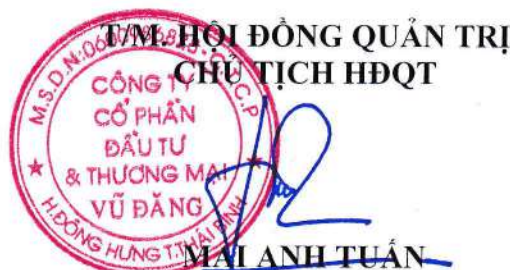 T/M. HỘI ĐỒNG QUẢN TRỊ
CHỦ TỊCH HĐQT
CÔNG TY
CỔ PHẦN
ĐẦU TƯ
& THƯƠNG MẠI
VŨ ĐĂNG
H.ĐÔNG HƯNG T.THÁI BÌNH
MAI ANH TUẤN